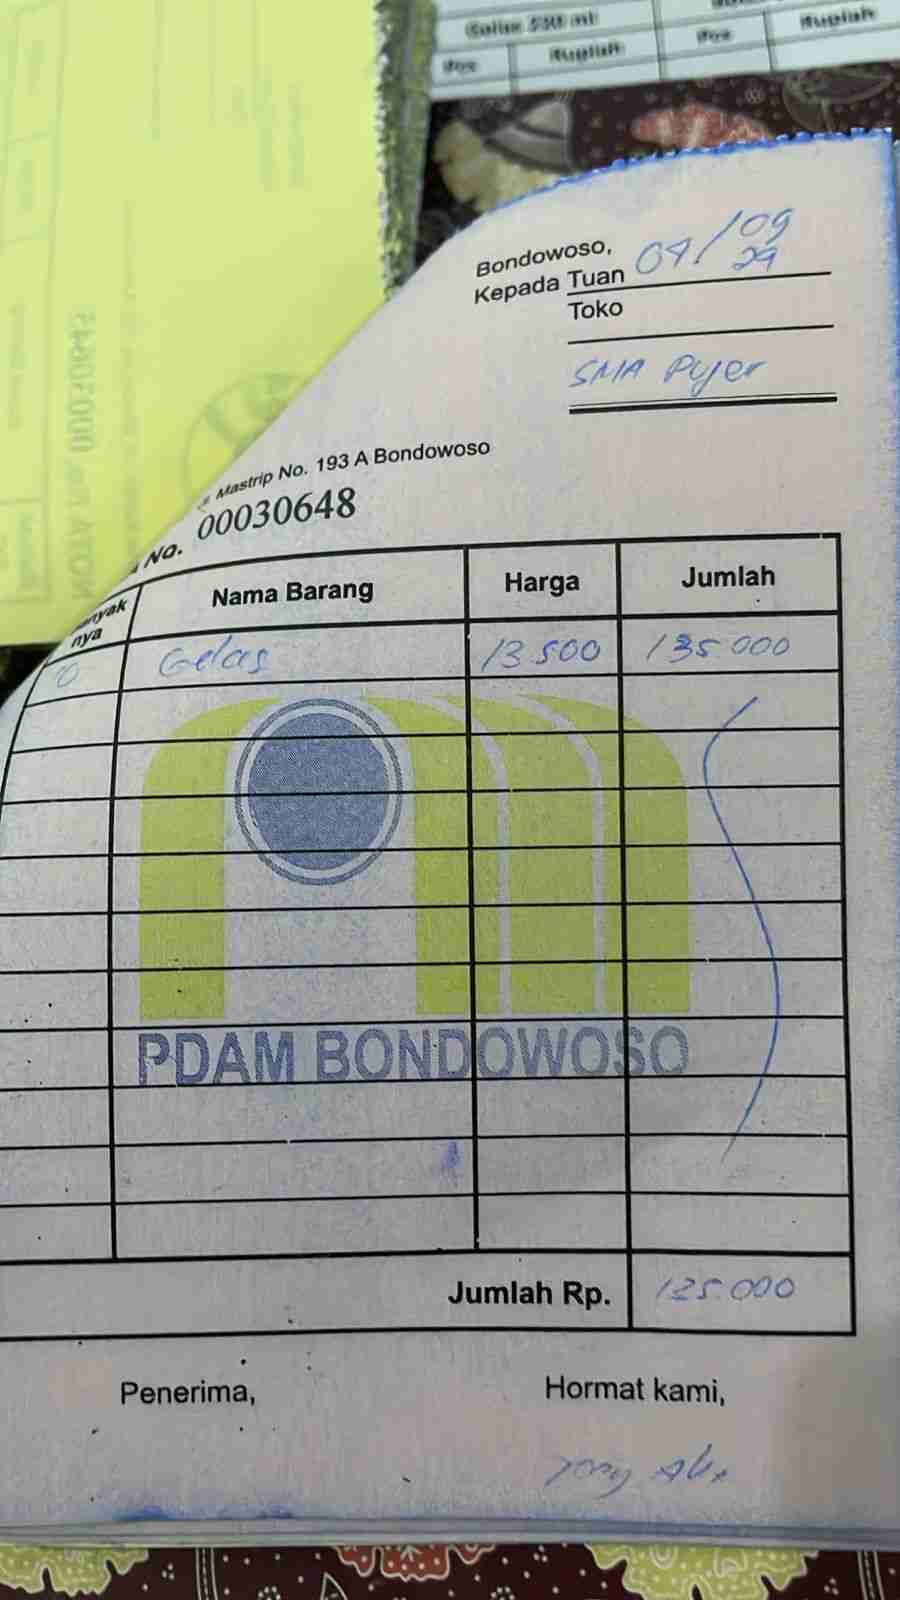 Gelas 330 ml
Pos Rupiah Pos Rupiah
Bondowoso, 04/09
24
Kepada Tuan
Toko
SMA Pujer
Mastrip No. 193 A Bondowoso
No. 00030648
anyak nya Nama Barang Harga Jumlah
0 Gelas 13 500 135.000
PDAM BONDOWOSO
Jumlah Rp. 135.000
Penerima, Hormat kami,